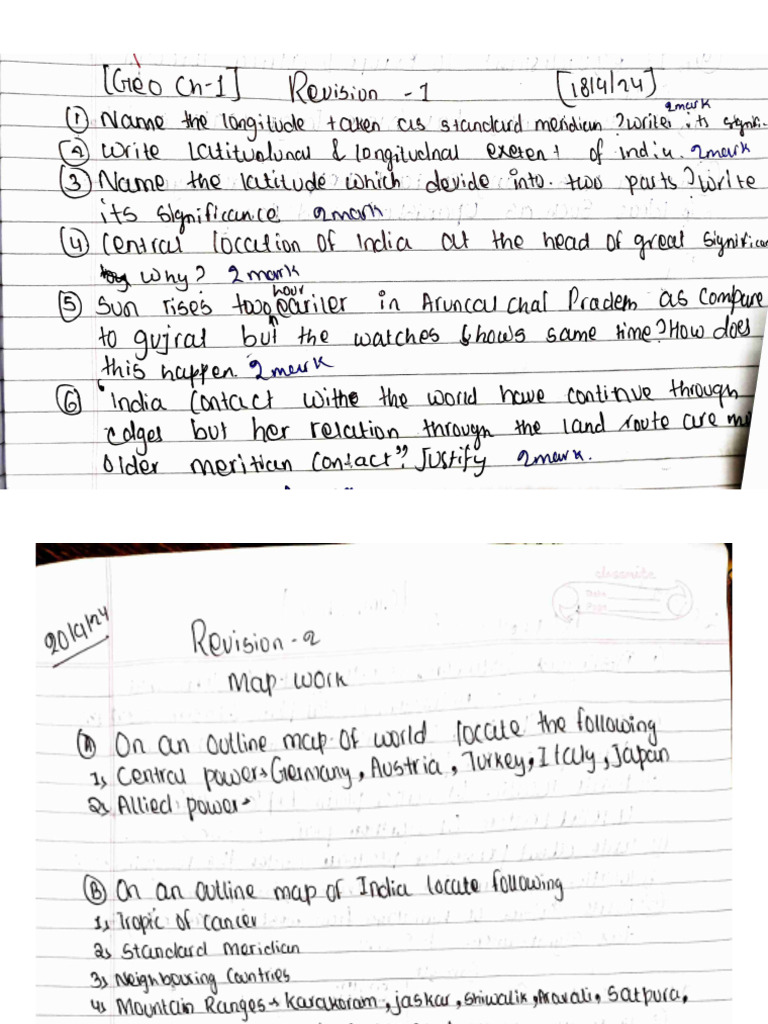 [Geo Ch-1] Revision -1 [18/4/24]
① Name the longitude taken as standard meridian ? write its signifi.
2mark
② Write latitudunal & longitudnal extent of india. 2mark
③ Name the latitude which devide into two parts? Write
its significance. 2mark
④ Central location of India at the head of great significan
Why? 2mark
⑤ Sun rises two hour eariler in Aruncal chal Pradem as compare
to gujral but the watches shows same time? How does
this happen. 2mark
⑥ "India Contact withe the world have continue through
edges but her relation through the land route are
older meritian contact"? Justify 2mark.
classmate
Date
Page
20/4/24
Revision-2
Map work
Ⓐ On an outline map of world locate the following
1, Central power→Germany, Austria, Turkey, Italy, Japan
2, Allied power→
Ⓑ On an outline map of India locate following
1, Tropic of cancer
2, Standard Meridian
3, Neighbouring Countries
4, Mountain Ranges→ Karakoram, jaskar, Shiwalik, Aravali, Satpura,